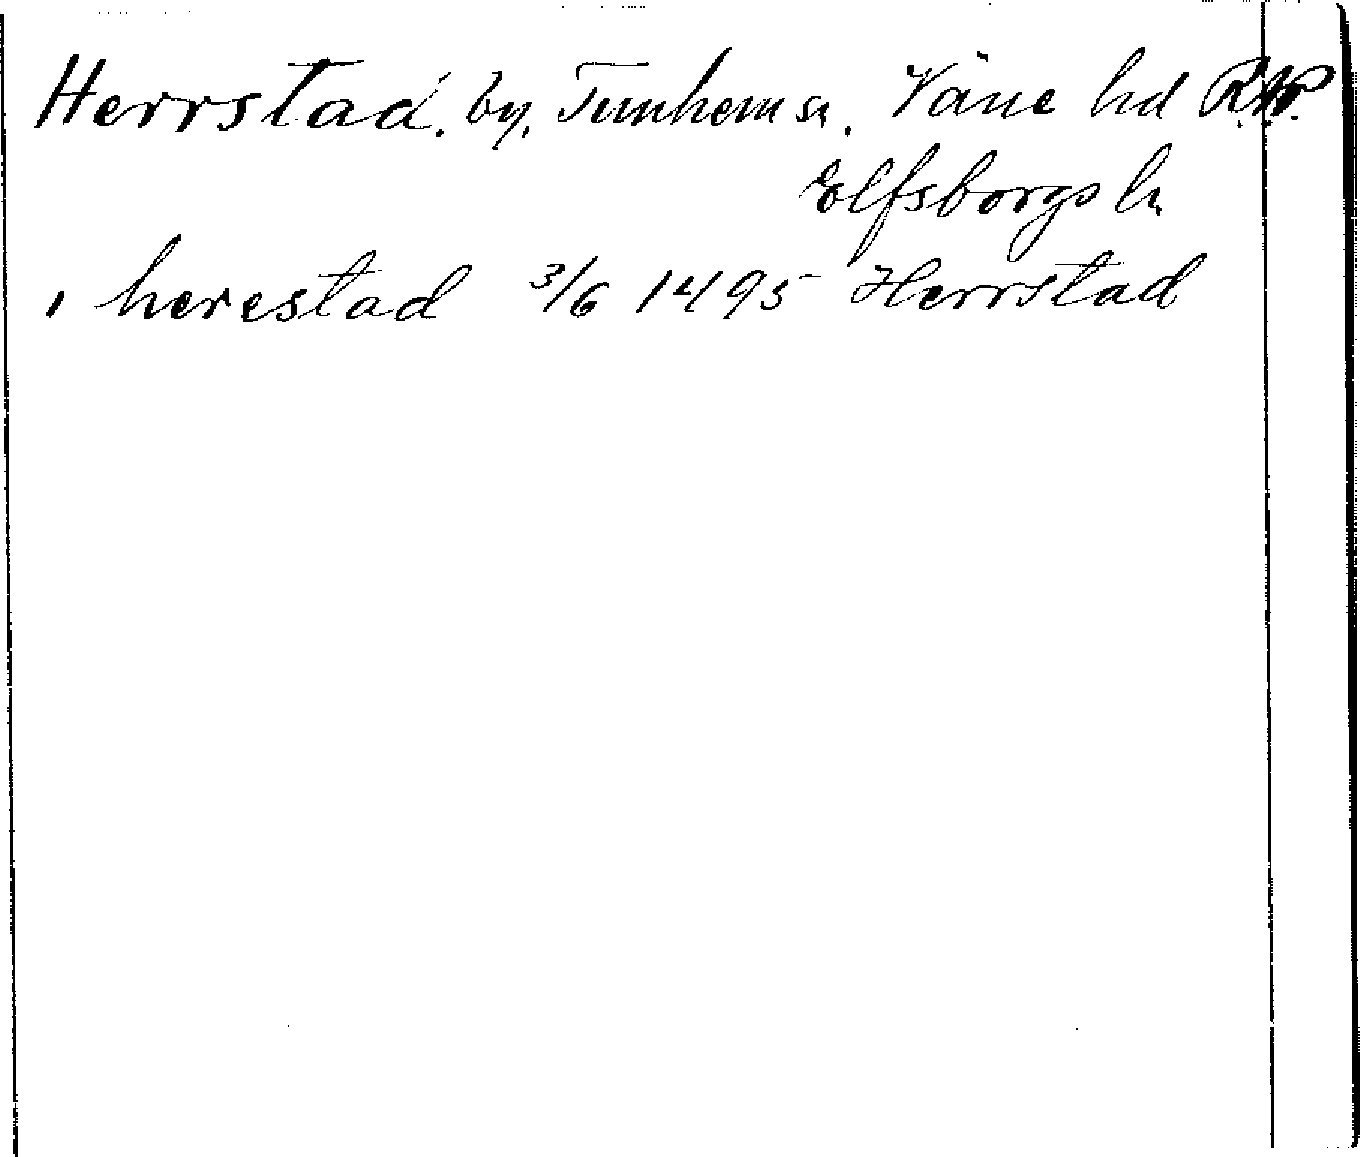 Herrstad. by, Tunhem sn. Väne hd R.AP.
Elfsborgs ln
i herestad 3/6 1495 Herrstad